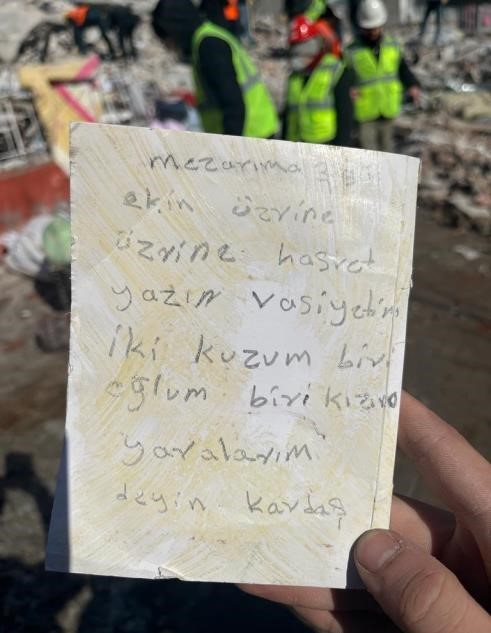 mezarıma
ekin üzrine
üzrine hasret
yazın vasiyetim
iki kuzum biri
oğlum biri kızım
yaralarım
deyin kardaş